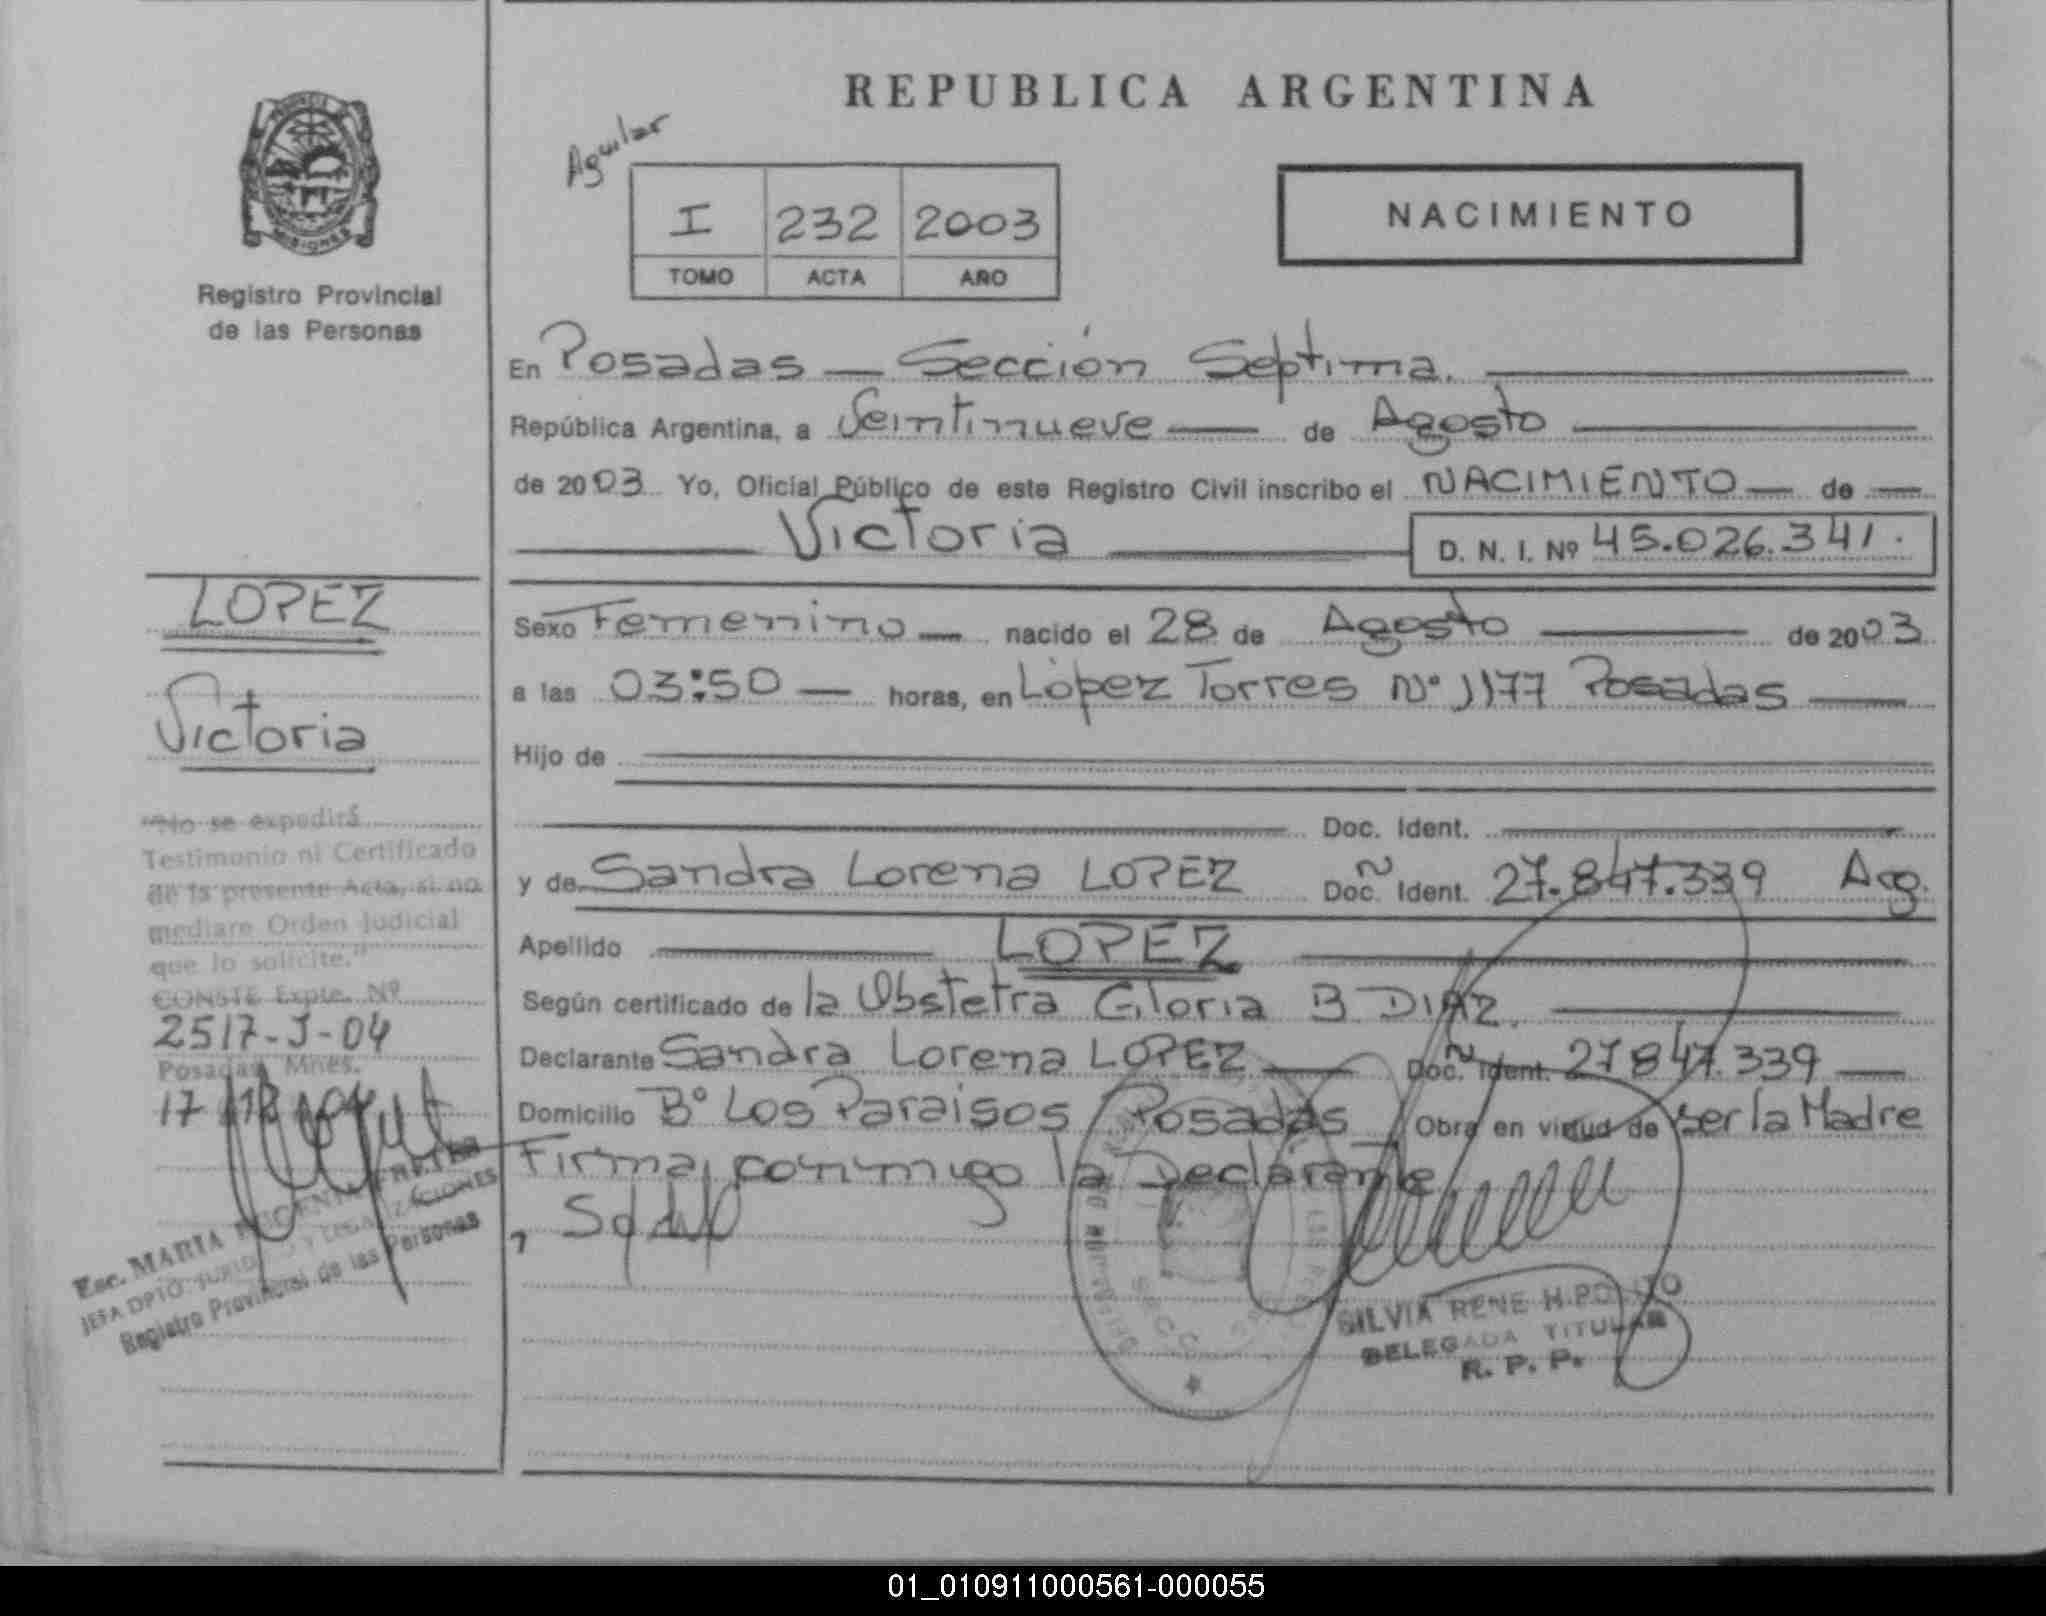 REPUBLICA ARGENTINA
Aguilar
I 232 2003
TOMO ACTA AÑO
NACIMIENTO
MISIONES
Registro Provincial
de las Personas
En Posadas — Sección Septima.
República Argentina, a Veintinueve — de Agosto
de 2003 Yo, Oficial Público de este Registro Civil inscribo el NACIMIENTO — de —
Victoria
D. N. I. Nº 45.026.341.
LOPEZ
Victoria
Sexo Femenino — nacido el 28 de Agosto — de 2003
a las 03:50 — horas, en López Torres Nº 1177 Posadas —
Hijo de
Doc. Ident.
y de Sandra Lorena LOPEZ Doc. N Ident. 27.847.339 Arg.
Apellido LOPEZ
Según certificado de la Obstetra Gloria B DIAZ.
Declarante Sandra Lorena LOPEZ — Doc. N Ident. 27847.339 —
Domicilio Bº Los Paraisos Posadas Obra en virtud de ser la Madre
Firma conmigo la Declarante
"No se expedirá
Testimonio ni Certificado
de la presente Acta, si no
mediare Orden Judicial
que lo solicite."
CONSTE Expte. Nº
2517-J-04
Posadas Mnes.
17
Esc. MARIA
JEFA DPTO. JURIDICO Y LEGALIZACIONES
Registro Provincial de las Personas
SILVIA RENE HIPOLITO
DELEGADA TITULAR
R. P. P.
01_010911000561-000055